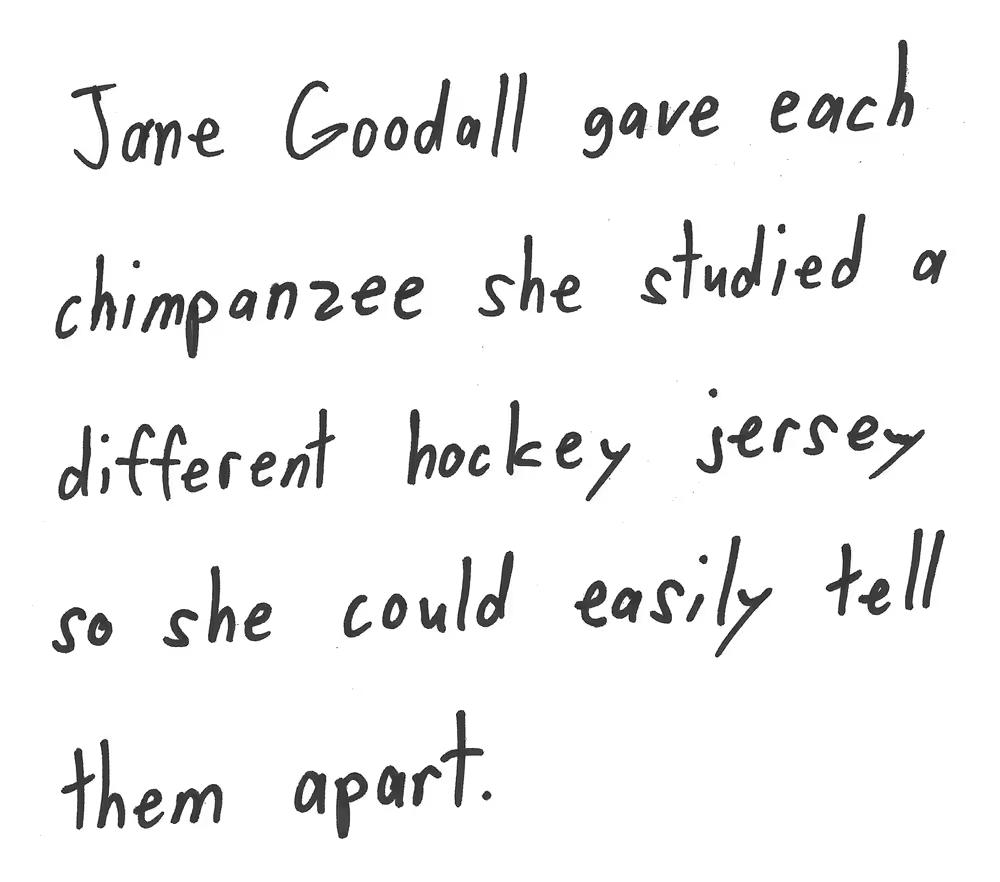 Jane Goodall gave each
chimpanzee she studied a
different hockey jersey
so she could easily tell
them apart.